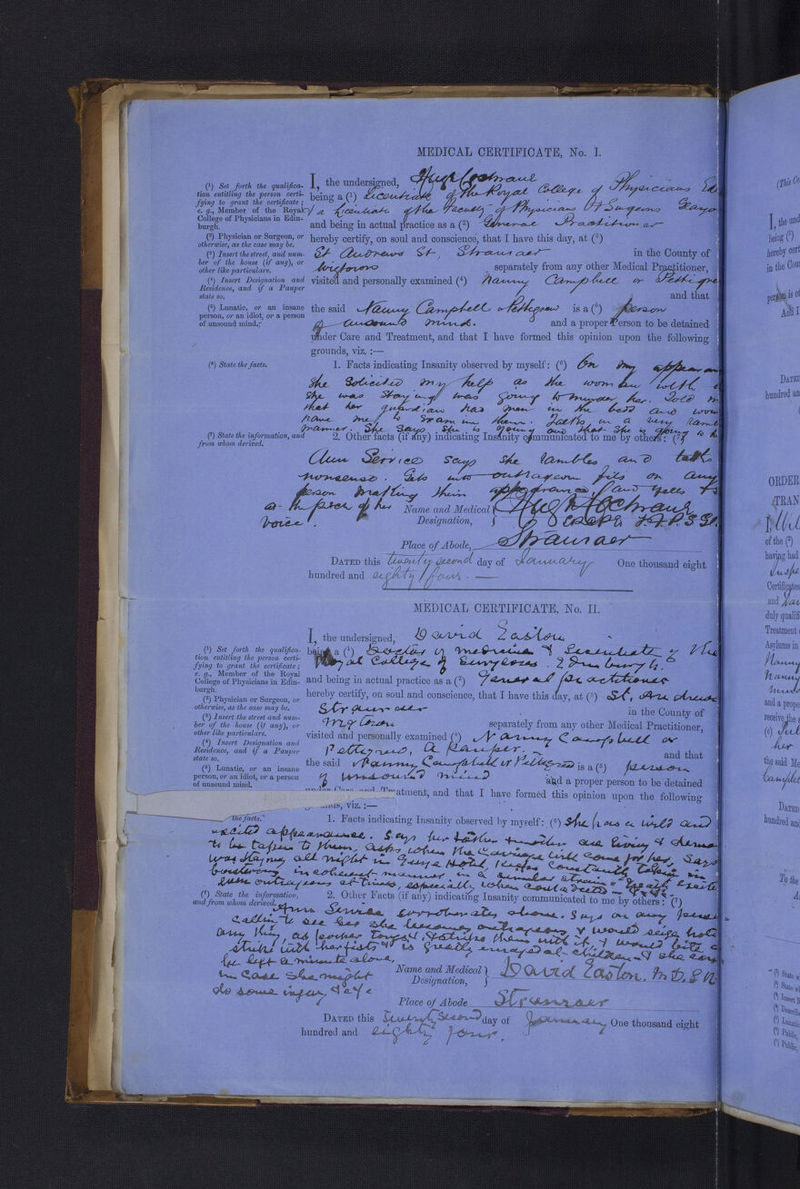 MEDICAL CERTIFICATE, No. I.
(¹) Set forth the qualifica-
tion entitling the person certi-
fying to grant the certificate;
e. g., Member of the Royal
College of Physicians in Edin-
burgh.
(²) Physician or Surgeon, or
otherwise, as the case may be.
(³) Insert the street, and num-
ber of the house (if any), or
other like particulars.
(⁴) Insert Designation and
Residence, and if a Pauper
state so.
(⁵) Lunatic, or an insane
person, or an idiot, or a person
of unsound mind.
(⁶) State the facts.
(⁷) State the information, and
from whom derived.
I, the undersigned, Hugh Cochrane
being a (¹) Licentiate of the Royal College of Physicians Ed
& a Licentiate of the Faculty of Physicians & Surgeons Glasgo
and being in actual practice as a (²) General Practitioner
hereby certify, on soul and conscience, that I have this day, at (³)
St Andrews St, Stranraer in the County of
Wigtown separately from any other Medical Practitioner,
visited and personally examined (⁴) Nanny Campbell or Pettigre
and that
the said Nanny Campbell or Pettigrew is a (⁵) person
of unsound mind. and a proper Person to be detained
under Care and Treatment, and that I have formed this opinion upon the following
grounds, viz. :—
1. Facts indicating Insanity observed by myself: (⁶) On my appearan
She Solicited my help as the woman with
She was staying was going to murder her. Told m
that her guardian had men in the beds and
have me to them. Talks in a very
manner. She says She is going and that She is going to
2. Other facts (if any) indicating Insanity communicated to me by others: (⁷)
Ann Service says she rambles and talks
nonsense. Gets into outrageous fits on any
person making their appearance and yells
at the of her
voice.
Name and Medical Designation, Hugh Cochrane
L.F.P.S.G
Place of Abode, Stranraer
DATED this twenty second day of January One thousand eight
hundred and eighty four. —
MEDICAL CERTIFICATE, No. II.
(¹) Set forth the qualifica-
tion entitling the person certi-
fying to grant the certificate;
e. g., Member of the Royal
College of Physicians in Edin-
burgh.
(²) Physician or Surgeon, or
otherwise, as the case may be.
(³) Insert the street and num-
ber of the house (if any), or
other like particulars.
(⁴) Insert Designation and
Residence, and if a Pauper
state so.
(⁵) Lunatic, or an insane
person, or an idiot, or a person
of unsound mind.
the facts.
(⁷) State the information,
and from whom derived.
I, the undersigned, David Easton
being a (¹) Doctor of medicine & Licentiate of the
Royal College of Surgeons. Edinburgh.
and being in actual practice as a (²) General practitioner
hereby certify, on soul and conscience, that I have this day, at (³) St, Andrews
Stranraer in the County of
Wigtown separately from any other Medical Practitioner,
visited and personally examined (⁴) Nanny Campbell or
Pettigrew, a Pauper. and that
the said Nanny Campbell or Pettigrew is a (⁵) person
of unsound mind and a proper person to be detained
under Care and Treatment, and that I have formed this opinion upon the following
viz. :—
1. Facts indicating Insanity observed by myself: (⁶) She has a wild and
excited appearance. Says her father & mother are living &
to be taken to them, asks when the carriage will come for her, Says
was staying all night in Hotel, Keeps constantly talking in
boisterous incoherent manner, in a similar strain
quite outrageous at times, especially when contradicted
2. Other Facts (if any) indicating Insanity communicated to me by others: (⁷)
Ann Service corroborates above. Says on any person
calling to see her she becomes outrageous & would seize hold
any thing as poker tongs & strikes them with it, & would bite
strike with her fists & is greatly enraged at children & she can
be left a minute alone,
in case she might
do some injury
Name and Medical Designation, David Easton. M.D.
Place of Abode Stranraer
DATED this Twenty Second day of January One thousand eight
hundred and eighty four.
I, the und
being (²)
hereby cert
in the Cou
And I
DATED
hundred an
ORDER
TRAN
of the (²)
having had
Certificates
duly qualifi
Treatment
Asylums in
and a prope
receive the
the said Me
DATED
hundred and
To the